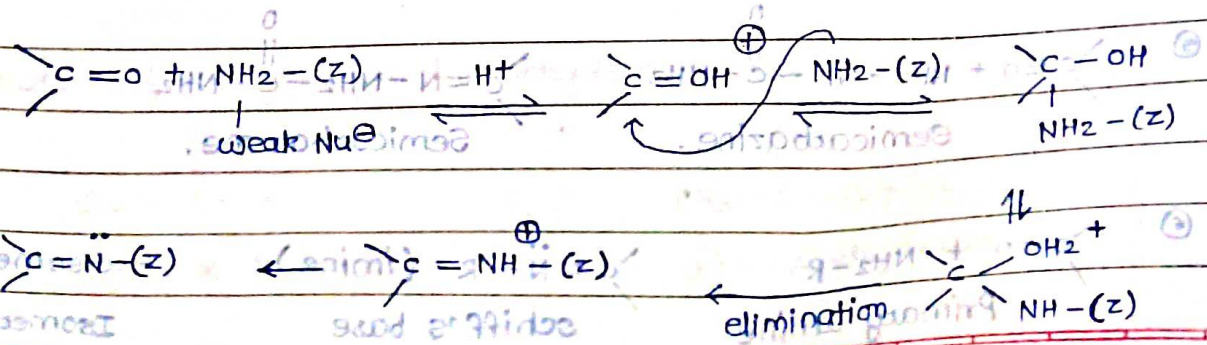 C=O + NH2-(Z) H+ C=OH ⊕ NH2-(Z) C-OH
weak Nu⊖ NH2-(Z)
⇅
C=N̈-(Z) ← C=NH-(Z) ⊕ ← elimination C OH2+
NH-(Z)